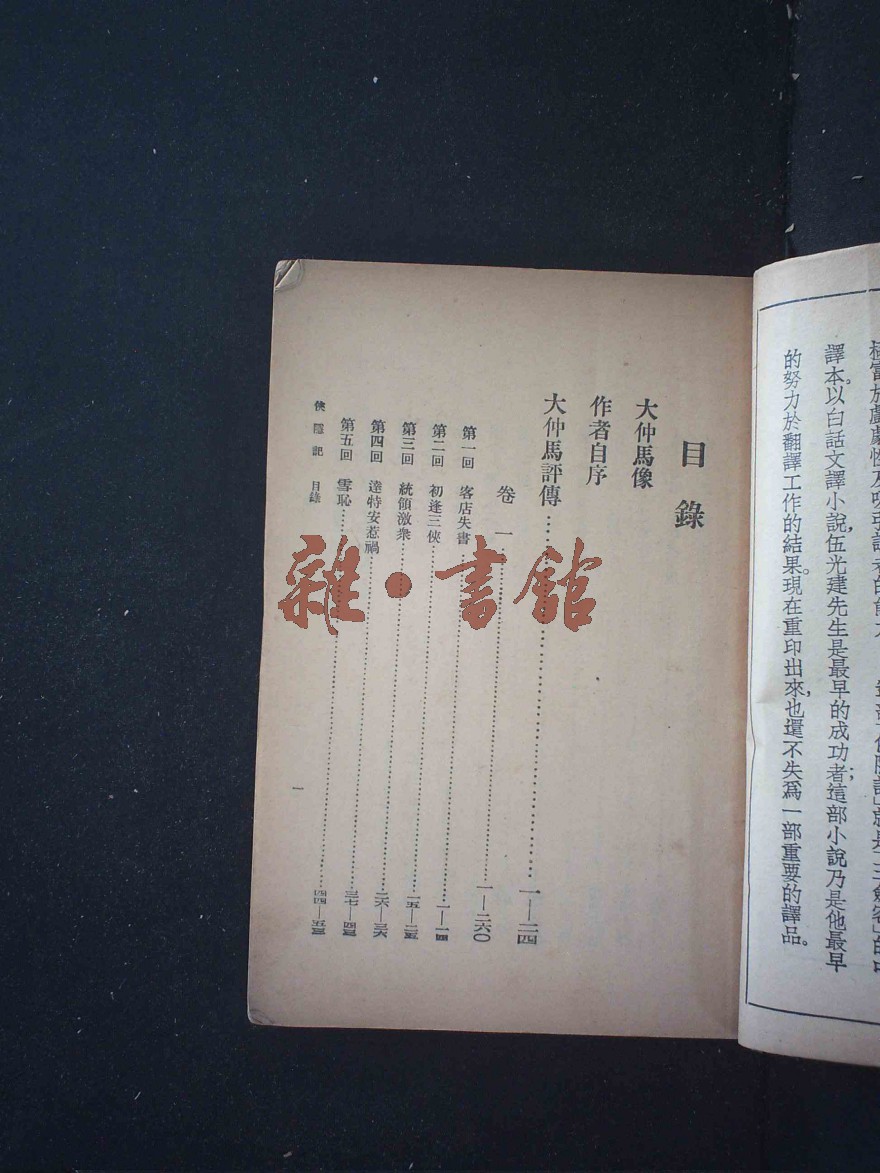 譯本。以白話文譯小說,伍光建先生是最早的成功者;這部小說乃是他最早
的努力於翻譯工作的結果。現在重印出來,也還不失爲一部重要的譯品。
目錄
大仲馬像
作者自序
大仲馬評傳……一—二四
卷一……一—二六〇
第一回 客店失書……一—一四
第二回 初逢三俠……一五—二五
第三回 統領激衆……二六—三六
第四回 達特安惹禍……三七—四三
第五回 雪恥……四四—五三
俠隱記 目錄
一
雜·書館